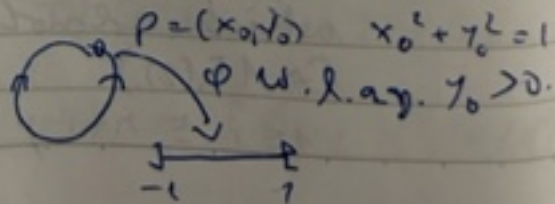 P = (x₀, y₀) x₀² + y₀² = 1
φ w.l.ag. y₀ > 0.
-1 1